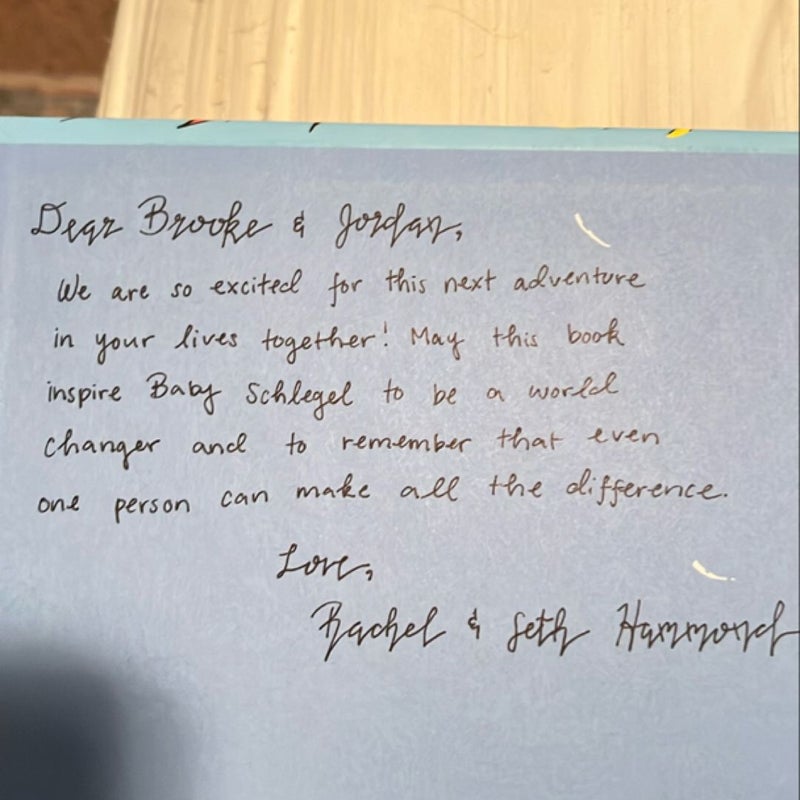 Dear Brooke & Jordan,
We are so excited for this next adventure
in your lives together! May this book
inspire Baby Schlegel to be a world
changer and to remember that even
one person can make all the difference.
Love,
Rachel & Seth Hammond